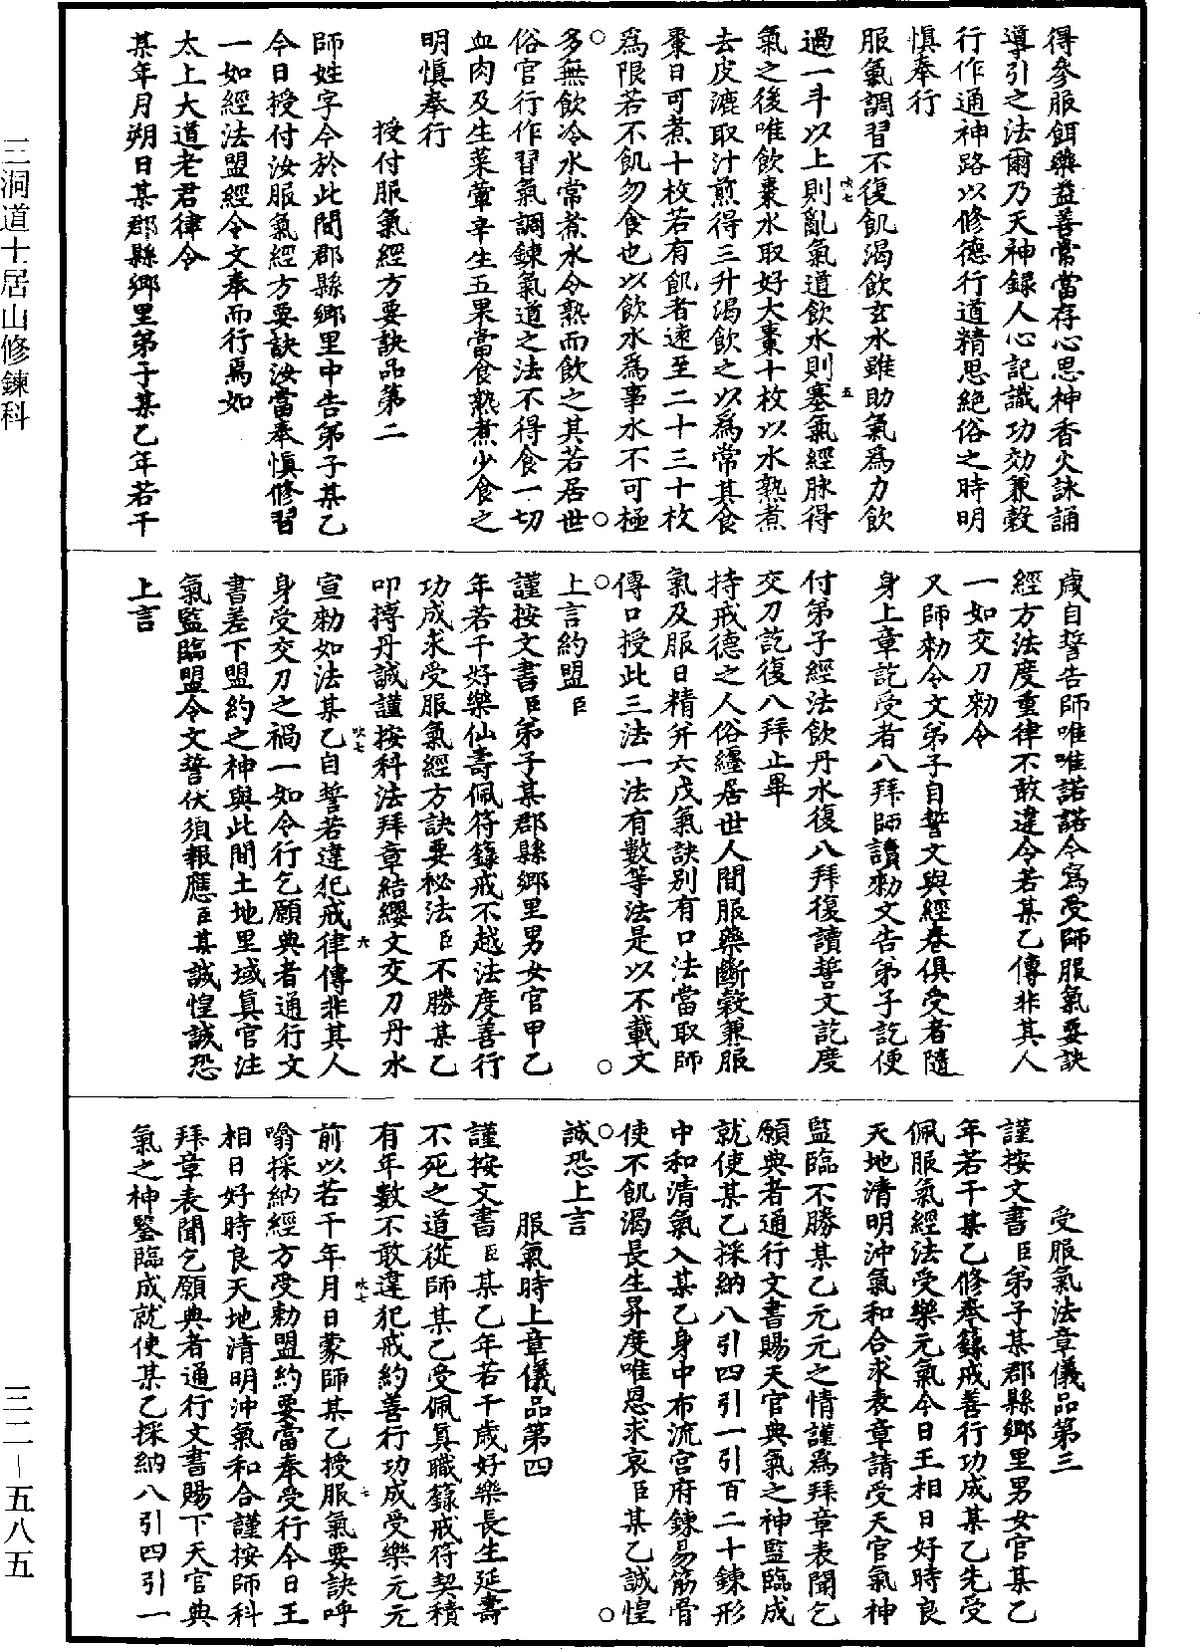 得參服餌藥益善常當存心思神香火誦詠
導引之法爾乃天神録人心記識功効兼穀
行作通神路以修德行道精思絶俗之時明
慎奉行
服氣調習不復飢渴飲玄水雖助氣爲力飲
過一斗以上則亂氣道飲水則塞氣經脉得
氣之後唯飲棗水取好大棗十枚以水熟煮
去皮漉取汁煎得三升渴飲之以爲常其食
棗日可煮十枚若有飢者速至二十三十枚
爲限若不飢勿食也以飲水爲事水不可極
多無飲冷水常煮水令熟而飲之其若居世
俗官行作習氣調鍊氣道之法不得食一切
血肉及生菜葷辛生五果當食熟煮少食之
明慎奉行
授付服氣經方要訣品第二
師姓字今於此間郡縣鄉里中告弟子某乙
今日授付汝服氣經方要訣汝當奉慎修習
一如經法盟經令文奉而行焉如
太上大道老君律令
某年月朔日某郡縣鄉里弟子某乙年若干
歲自誓告師唯唯諾諾今寫受師服氣要訣
經方法度重律不敢違令若某乙傳非其人
一如交刀勑令
又師勑令文弟子自誓文與經卷俱受者隨
身上章訖受者八拜師讀勑文告弟子訖便
付弟子經法飲丹水復八拜復讀誓文訖度
交刀訖復八拜止畢
持戒德之人俗纏居世人間服藥斷穀兼服
氣及服日精并六戊氣訣别有口法當取師
傳口授此三法一法有數等法是以不載文
上言約盟臣
謹按文書臣弟子某郡縣鄉里男女官甲乙
年若干好樂仙壽佩符籙戒不越法度善行
功成求受服氣經方訣要秘法臣不勝某乙
叩摶丹誠謹按科法拜章結纓文交刀丹水
宣勑如法某乙自誓若違犯戒律傳非其人
身受交刀之禍一如令行乞願典者通行文
書差下盟約之神與此間土地里域真官注
氣監臨盟令文誓伏須報應臣某誠惶誠恐
上言
受服氣法章儀品第三
謹按文書臣弟子某郡縣鄉里男女官某乙
年若干某乙修奉籙戒善行功成某乙先受
佩服氣經法受樂元氣今日王相日好時良
天地清明沖氣和合求表章請受天官氣神
監臨不勝某乙元元之情謹爲拜章表聞乞
願典者通行文書賜天官典氣之神監臨成
就使某乙採納八引四引一引百二十鍊形
中和清氣入某乙身中布流宮府鍊易筋骨
使不飢渴長生昇度唯恩求哀臣某乙誠惶
誠恐上言
服氣時上章儀品第四
謹按文書臣某乙年若干歲好樂長生延壽
不死之道從師某乙受佩真職籙戒符契積
有年數不敢違犯戒約善行功成受樂元元
前以若干年月日蒙師某乙授服氣要訣呼
噏採納經方受勑盟約要當奉受行今日王
相日好時良天地清明沖氣和合謹按師科
拜章表聞乞願典者通行文書賜下天官典
氣之神鑒臨成就使某乙採納八引四引一
三洞道士居山修鍊科
三二－五八五